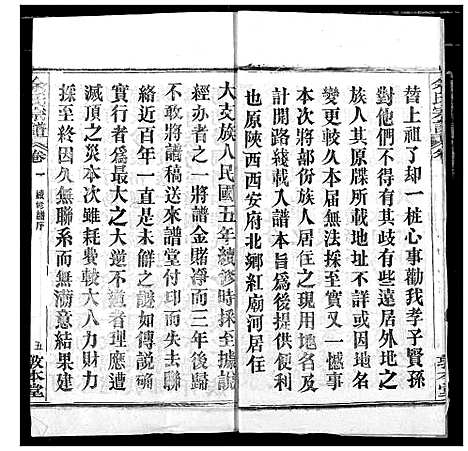 替上祖了却一桩心事勸我孝子賢孫
對您们不得有其歧有些遠居外地之
族人其原牒所載地址不詳或因地名
變更較久本届無法採至實又一憾事
本次將部份族人居住之現用地名及
計開路綫載入譜本旨爲後提供便利
也原陝西西安府北鄉紅廟河居住
大支族人民國五年續修時採至據説
經办者一之將譜金賭净而三年後歸
不敢將譜稿送來譜堂付印而失去聯
絡近百年一直是未觧之謎如傳説确
實行者人爲最大之大還不道者理應遭
滅頂之灾本次雖耗費較大人力財力
採至終因久無聯系而無滿意結果建
余氏宗譜
卷一
續修譜序
五
敦本堂